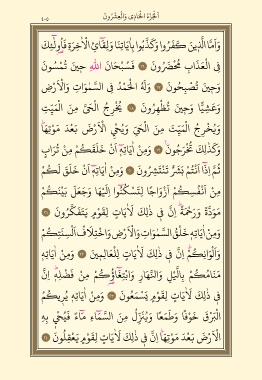 الجزء الحادي والعشرون
٤٠٥
وَاَمَّا الَّذ۪ينَ كَفَرُوا وَكَذَّبُوا بِاٰيَاتِنَا وَلِقَٓائِ الْاٰخِرَةِ فَاُو۬لٰٓئِكَ
فِي الْعَذَابِ مُحْضَرُونَ ﴿١٦﴾ فَسُبْحَانَ اللّٰهِ ح۪ينَ تُمْسُونَ
وَح۪ينَ تُصْبِحُونَ ﴿١٧﴾ وَلَهُ الْحَمْدُ فِي السَّمٰوَاتِ وَالْاَرْضِ
وَعَشِيًّا وَح۪ينَ تُظْهِرُونَ ﴿١٨﴾ يُخْرِجُ الْحَيَّ مِنَ الْمَيِّتِ
وَيُخْرِجُ الْمَيِّتَ مِنَ الْحَيِّ وَيُحْيِ الْاَرْضَ بَعْدَ مَوْتِهَاۜ
وَكَذٰلِكَ تُخْرَجُونَ۟ ﴿١٩﴾ وَمِنْ اٰيَاتِه۪ٓ اَنْ خَلَقَكُمْ مِنْ تُرَابٍ
ثُمَّ اِذَٓا اَنْتُمْ بَشَرٌ تَنْتَشِرُونَ ﴿٢٠﴾ وَمِنْ اٰيَاتِه۪ٓ اَنْ خَلَقَ لَكُمْ
مِنْ اَنْفُسِكُمْ اَزْوَاجًا لِتَسْكُنُٓوا اِلَيْهَا وَجَعَلَ بَيْنَكُمْ
مَوَدَّةً وَرَحْمَةًۜ اِنَّ ف۪ي ذٰلِكَ لَاٰيَاتٍ لِقَوْمٍ يَتَفَكَّرُونَ ﴿٢١﴾
وَمِنْ اٰيَاتِه۪ خَلْقُ السَّمٰوَاتِ وَالْاَرْضِ وَاخْتِلَافُ اَلْسِنَتِكُمْ
وَاَلْوَانِكُمْۜ اِنَّ ف۪ي ذٰلِكَ لَاٰيَاتٍ لِلْعَالِم۪ينَ ﴿٢٢﴾ وَمِنْ اٰيَاتِه۪
مَنَامُكُمْ بِالَّيْلِ وَالنَّهَارِ وَابْتِغَٓاؤُ۬كُمْ مِنْ فَضْلِه۪ۜ اِنَّ
ف۪ي ذٰلِكَ لَاٰيَاتٍ لِقَوْمٍ يَسْمَعُونَ ﴿٢٣﴾ وَمِنْ اٰيَاتِه۪ يُر۪يكُمُ
الْبَرْقَ خَوْفًا وَطَمَعًا وَيُنَزِّلُ مِنَ السَّمَٓاءِ مَٓاءً فَيُحْي۪ بِهِ
الْاَرْضَ بَعْدَ مَوْتِهَاۜ اِنَّ ف۪ي ذٰلِكَ لَاٰيَاتٍ لِقَوْمٍ يَعْقِلُونَ ﴿٢٤﴾